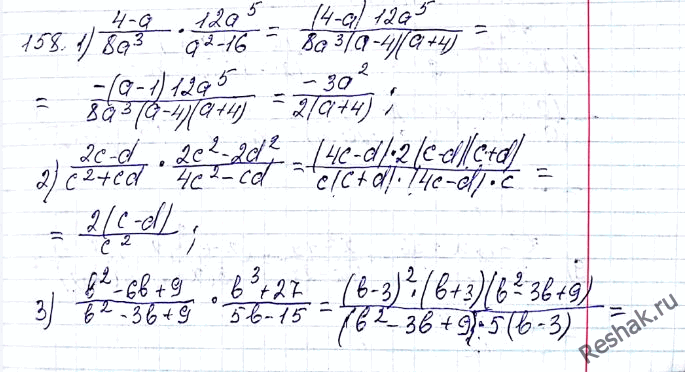 158. 1) \frac{4-a}{8a^3} \cdot \frac{12a^5}{a^2-16} = \frac{(4-a) 12a^5}{8a^3(a-4)(a+4)} =
= \frac{-(a-1) 12a^5}{8a^3(a-4)(a+4)} = \frac{-3a^2}{2(a+4)} ;
2) \frac{2c-d}{c^2+cd} \cdot \frac{2c^2-2d^2}{4c^2-cd} = \frac{(4c-d) \cdot 2(c-d)(c+d)}{c(c+d) \cdot (4c-d) \cdot c} =
= \frac{2(c-d)}{c^2} ;
3) \frac{b^2-6b+9}{b^2-3b+9} \cdot \frac{b^3+27}{5b-15} = \frac{(b-3)^2 \cdot (b+3)(b^2-3b+9)}{(b^2-3b+9) \cdot 5(b-3)} =
Reshak.ru